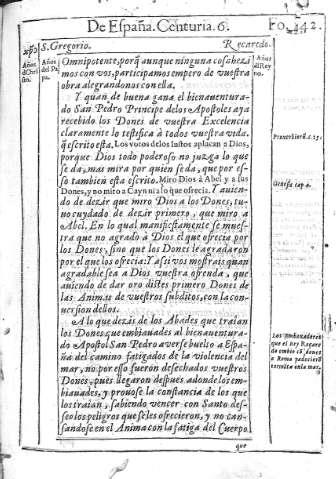 De España. Centuria. 6.
Fo. 142.
S. Gregorio.
Recaredo.
Años
Años
Omnipotente, porq̃ aunque ninguna cosa hezi
mos con vos, participamos empero de vuestra
obra alegrandonos con ella.
Y quan de buena gana el bienauentura-
do San Pedro Principe de los Apostoles aya
recebido los Dones de vuestra Excelencia
claramente lo testifica à todos vuestra vida.
q̃ escrito esta, Los votos de los Iustos aplacan a Dios,
porque Dios todo poderoso no juzga lo que
se da, mas mira por quien se da, que por es-
so tambien està escrito, Miro Dios à Abel y a sus
Dones, y no miro a Cayn ni a lo que ofrecia. Y auien-
do de dezir que miro Dios a los Dones, tu-
uo cuydado de dezir primero, que miro a
Abel. En lo qual manifiestamente se mues-
tra que no agradò a Dios el que ofrecia por
los Dones, sino que los Dones le agradaron
por el que los ofrecia: Y assi vos mostrais quan
agradable sea a Dios vuestra ofrenda, que
auiendo de dar oro distes primero Dones de
las Animas de vuestros subditos, con la con-
uersion dellos.
A lo que dezis de los Abades que traian
los Dones, que embiauades al bienauentura-
do Apostol San Pedro a verse buelto a Espa-
ña del camino fatigados de la violencia del
mar, no por esso fueron desechados vuestros
Dones, pues llegaron despues adonde los em-
biauades, y prouose la constancia de los que
los traian, sabiendo vencer con Santo des-
seo los peligros que se les ofrecieron, y no can-
sandose en el Animo con la fatiga del Cuerpo
que
Prouerbior. c. 15.
Genesis cap. 4.
Los embaxadores
que el Rey Recare
do embio cõ dones
a Roma padecierõ
tormẽta en la mar.